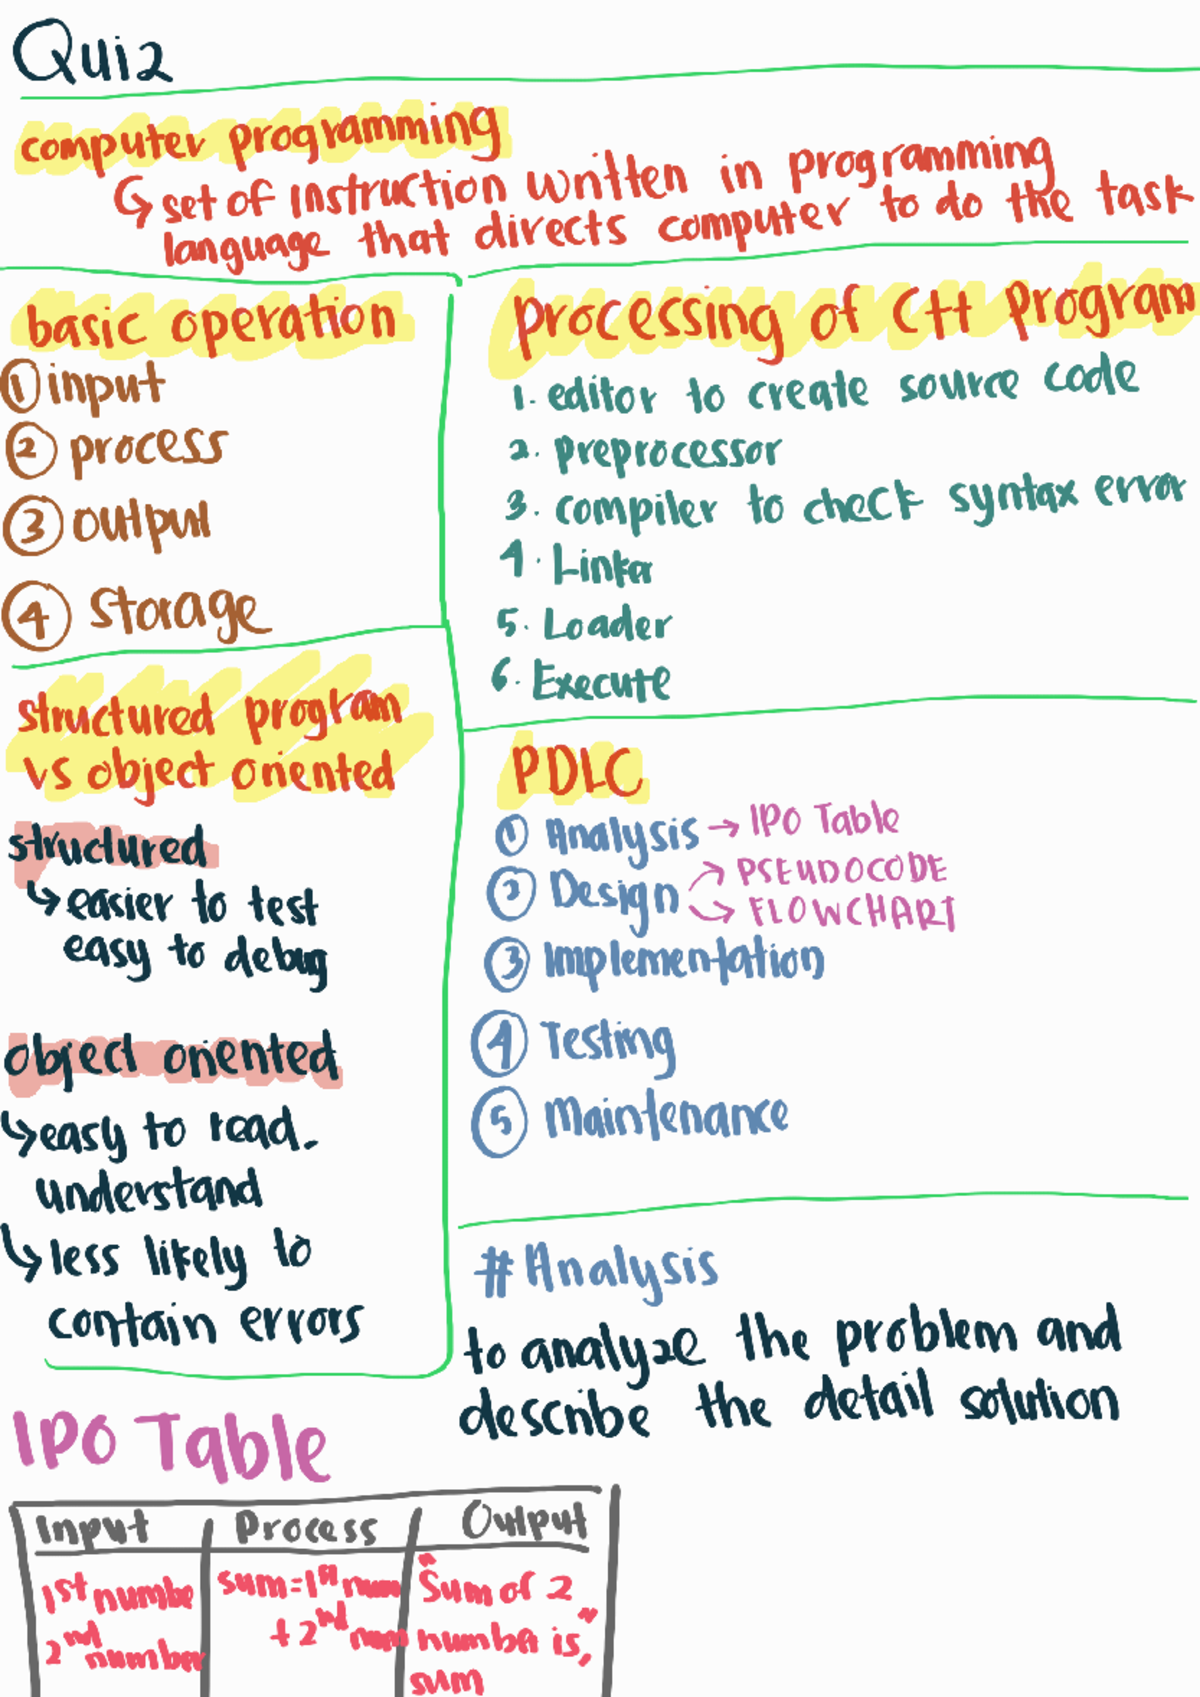 Quiz
computer programming
↳ set of instruction written in programming
language that directs computer to do the task
basic operation
① input
② process
③ output
④ storage
processing of C++ Program
1. editor to create source code
2. preprocessor
3. compiler to check syntax error
4. Linker
5. Loader
6. Execute
structured program
vs object oriented
structured
↳ easier to test
easy to debug
object oriented
↳ easy to read
understand
↳ less likely to
contain errors
PDLC
① Analysis → IPO Table
② Design → PSEUDOCODE
→ FLOWCHART
③ Implementation
④ Testing
⑤ Maintenance
# Analysis
to analyze the problem and
describe the detail solution
IPO Table
Input Process Output
1st numbe sum=1st num "Sum of 2
2nd number +2nd num number is,"
sum